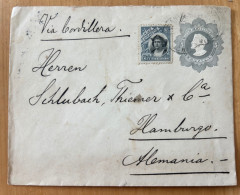 Via Cordillera.
Herren
Schlubach, Thiemer & Ca
Hamburgo.
Alemania.—